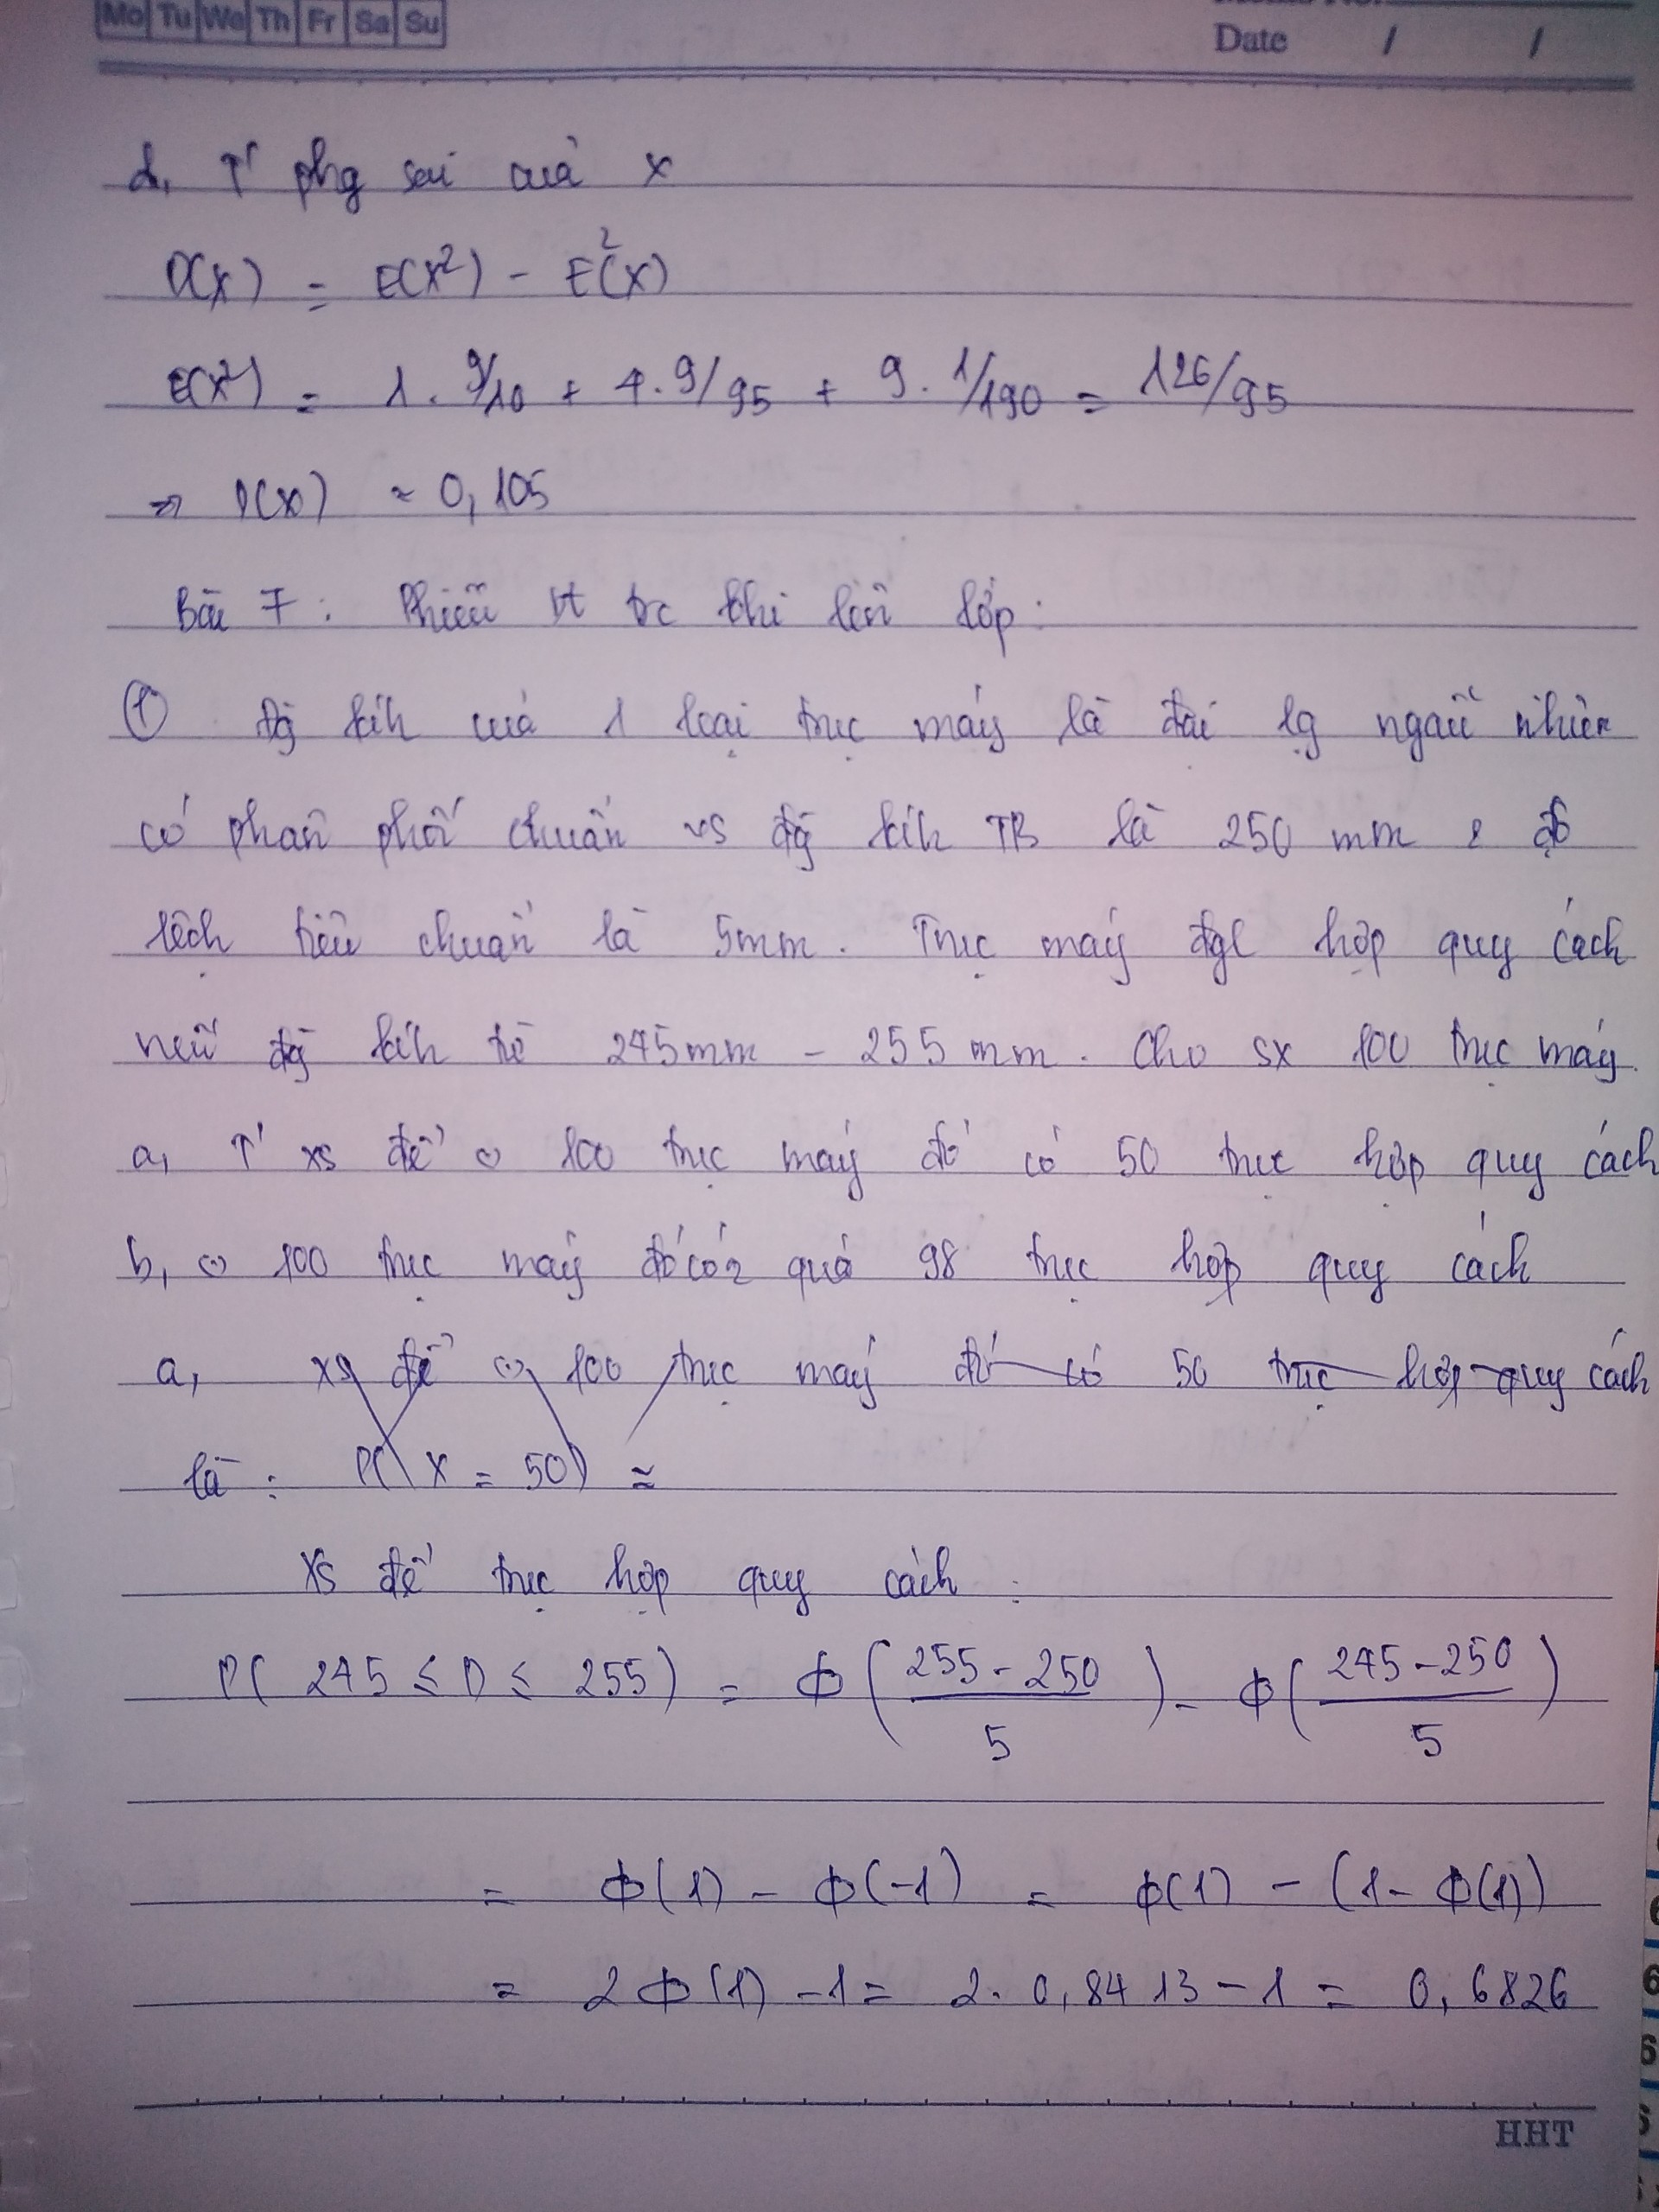 Mo Tu We Th Fr Sa Su
Date / /
d, T' phg sai của X
D(X) = E(X²) - E²(X)
E(X²) = 1. 9/10 + 4. 9/95 + 9. 1/190 = 126/95
⇒ D(X) ≈ 0,105
Bài 7: Phiếu trc khi lên lớp:
① Đg kíh của 1 loại trục máy là đại lg ngẫu nhiên
có phân phối chuẩn vs đg kíh TB là 250 mm & độ
lệch tiêu chuẩn là 5mm. Trục máy đgl hợp quy cách
nếu đg kíh từ 245mm - 255 mm. Cho sx 100 trục máy.
a, T' xs để 100 trục máy đó có 50 trục hợp quy cách
b, 100 trục máy đó có quá 98 trục hợp quy cách
a, xs để 100 trục máy đó có 50 trục hợp quy cách
là : P( X = 50) ≈
XS để trục hợp quy cách :
P( 245 ≤ D ≤ 255) = Φ( (255 - 250)/5 ) - Φ( (245 - 250)/5 )
= Φ(1) - Φ(-1) = Φ(1) - (1 - Φ(1))
= 2Φ(1) - 1 = 2. 0,8413 - 1 = 0,6826
HHT